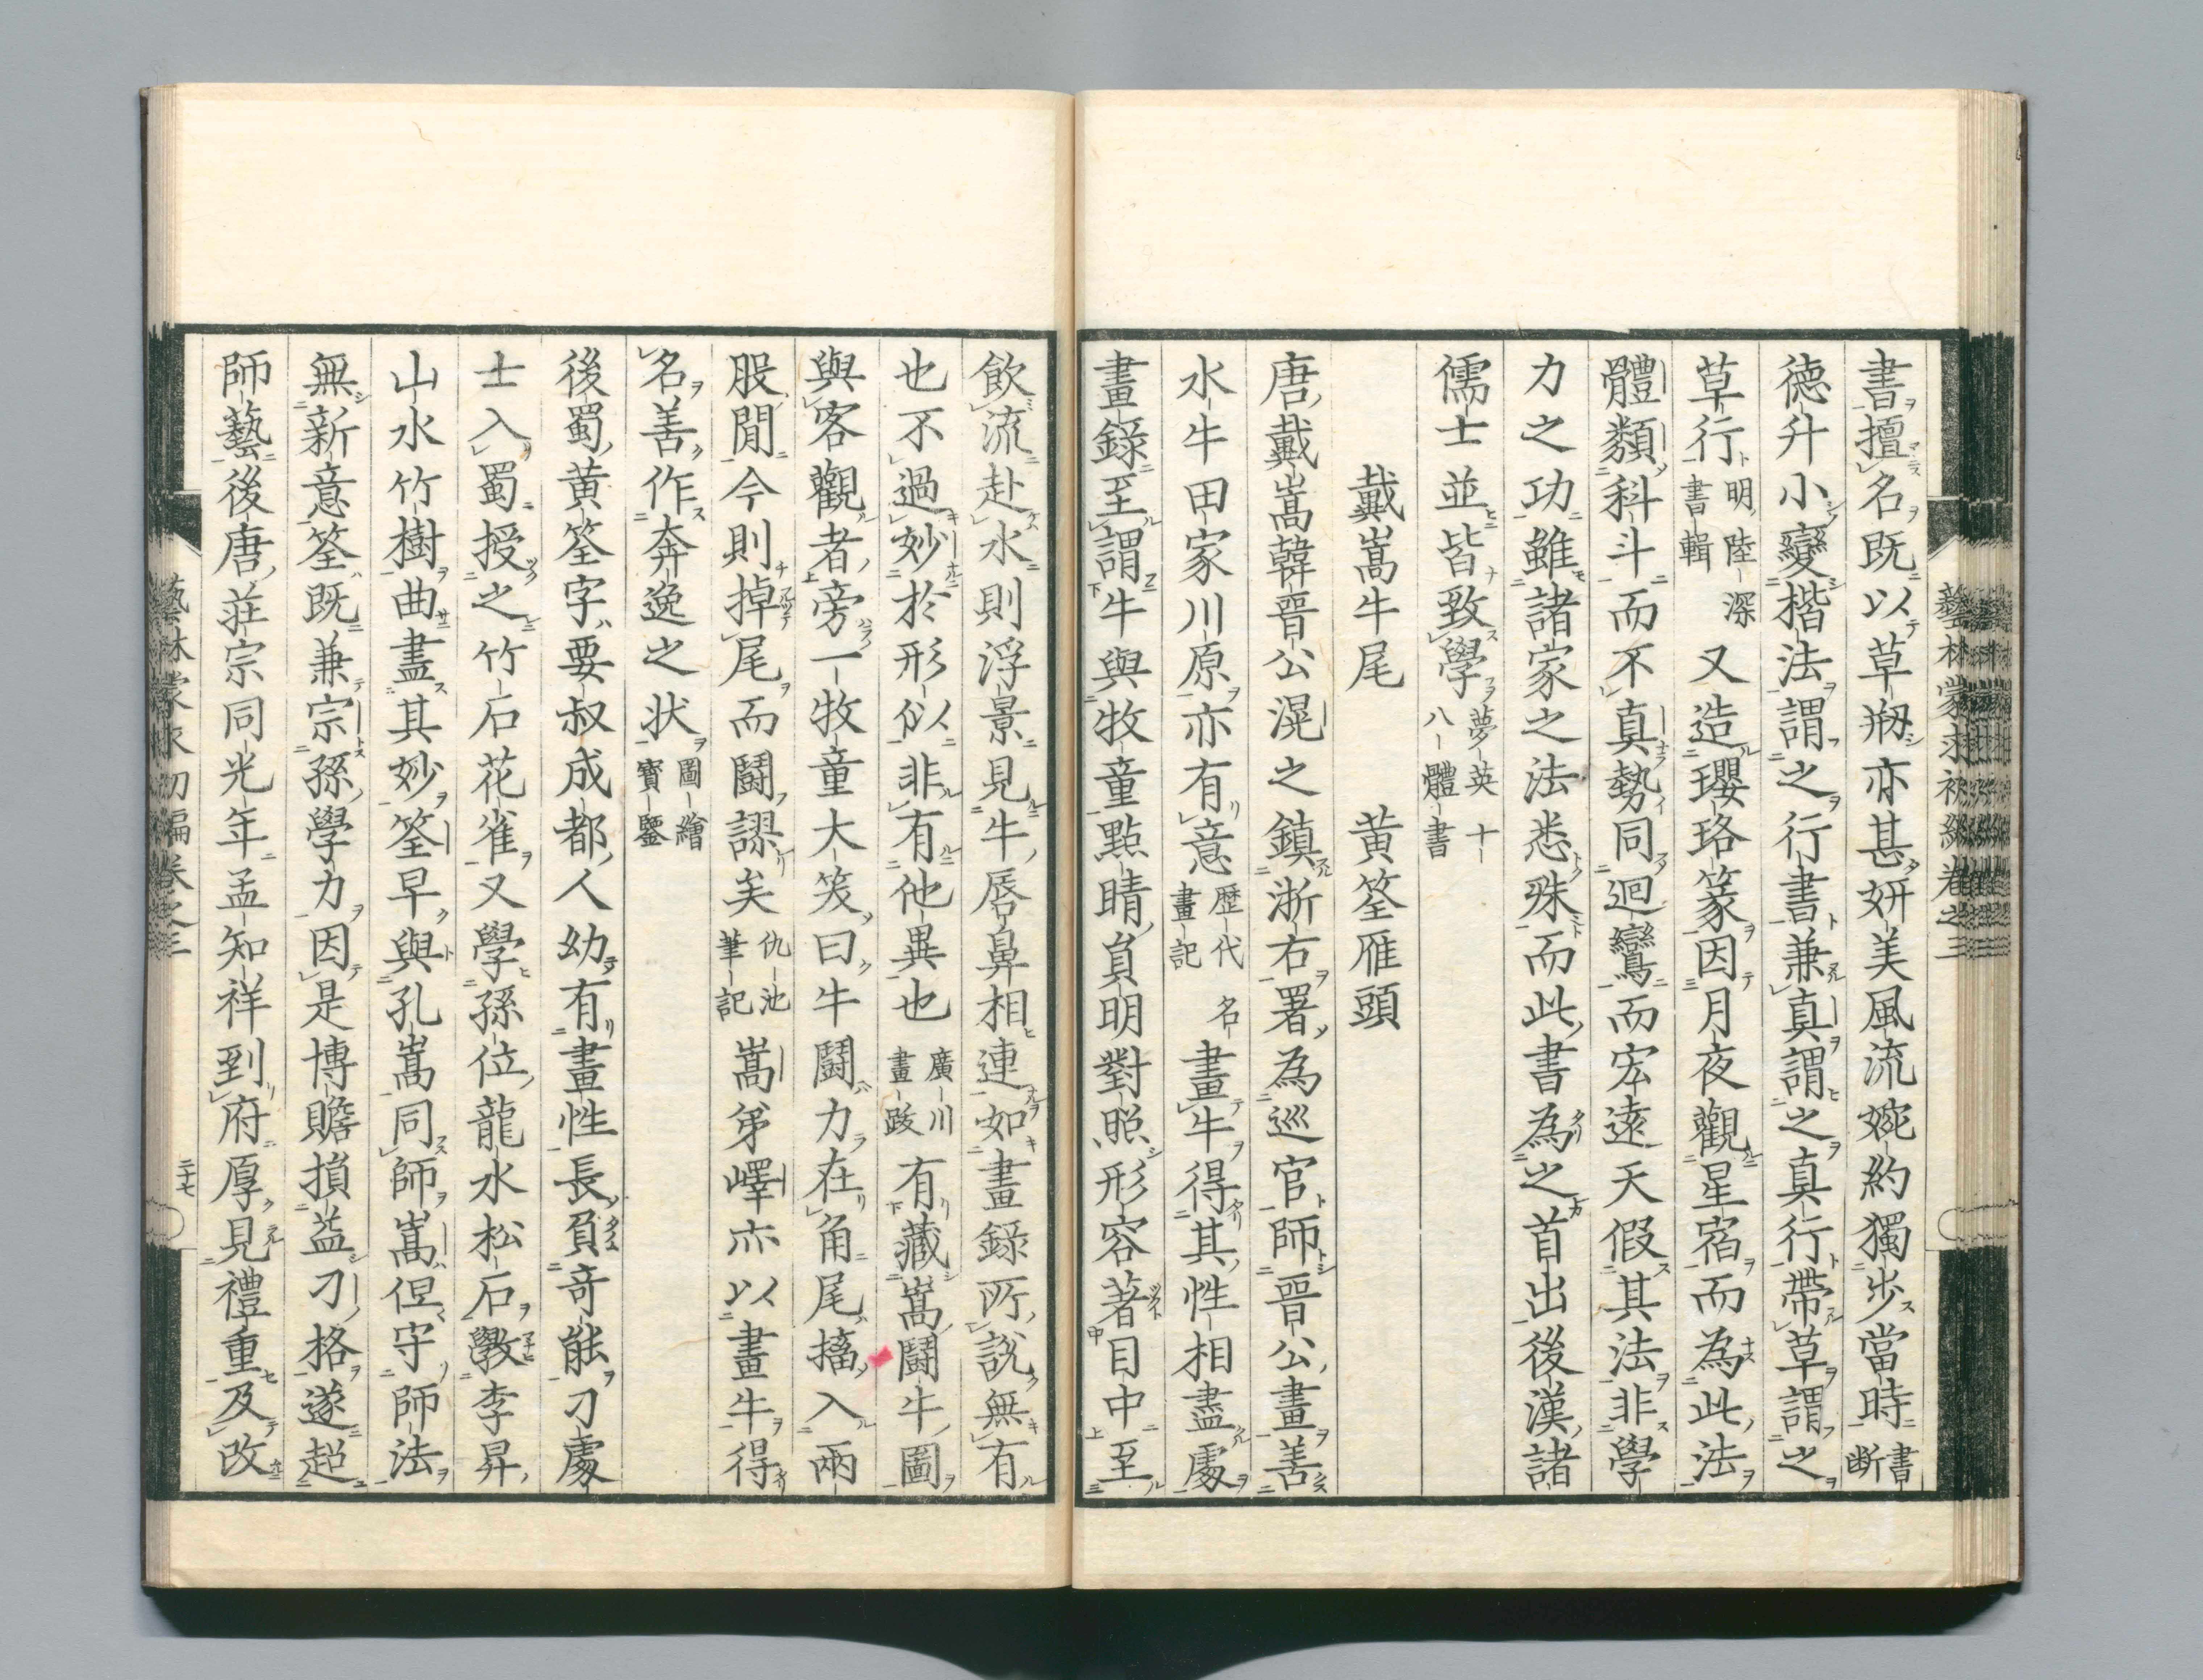 藝林蒙求初編卷之三
書擅名既以草剙亦甚妍美風流婉約獨步當時書断
德升小變楷法謂之行書兼真謂之真行帶草謂之
草行明陸深書輯又造瓔珞篆因月夜觀星宿而為此法
體類科斗而不真勢同迴鸞而宏遠天假其法非學
力之功雖諸家之法悉殊而此書為之首出後漢諸
儒士並皆致學夢英十八體書
戴嵩牛尾　黄筌雁頭
唐戴嵩韓晋公滉之鎮浙右署為巡官師晋公畫善
水牛田家川原亦有意歴代名畫記畫牛得其性相盡處
畫錄至謂牛與牧童點睛負明對照形容著目中至
飲流赴水則浮景見牛唇鼻相連如畫錄所說無有
也不過妙於形似非有他異也廣川畫跋有藏嵩鬪牛圖
與客觀者旁一牧童大笑曰牛鬪力在角尾搐入兩
股間今則掉尾而鬪謬矣仇池筆記嵩弟嶧亦以畫牛得
名善作奔逸之状圖繪寶鑒
後蜀黄筌字要叔成都人幼有畫性長負奇能刁處
士入蜀授之竹石花雀又學孫位龍水松石教李昇
山水竹樹曲盡其妙筌早與孔嵩同師嵩但守師法
無新意筌既兼宗孫學力因是博贍損益刁格遂超
師藝後唐莊宗同光年孟知祥到府厚見禮重及改
藝林蒙求初編卷之三　二十七